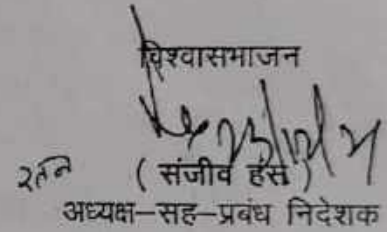 विश्वासभाजन
रतन
( संजीव हंस )
अध्यक्ष–सह–प्रबंध निदेशक